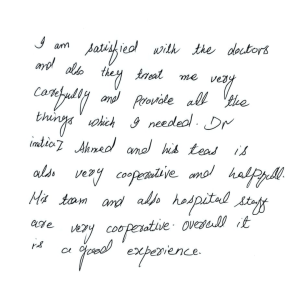 I am satisfied with the doctors
and also they treat me very
carefully and provide all the
things which I needed. Dr
imtiaz Ahmed and his team is
also very cooperative and helpfull.
His team and also hospital staff
are very cooperative. overall it
is a good experience.